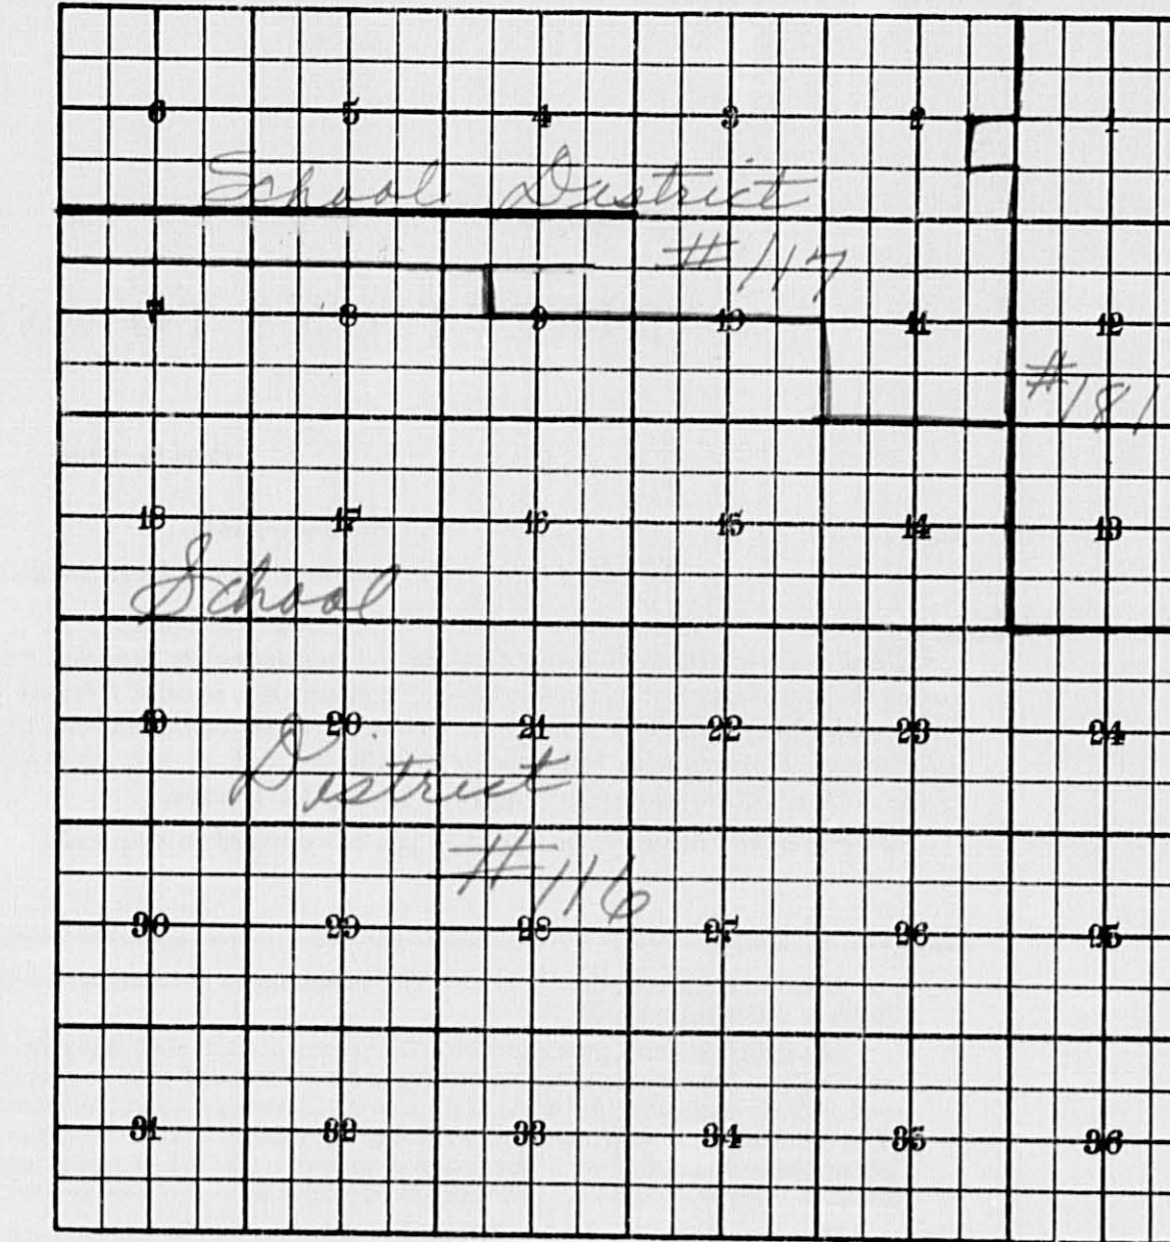 6 5 4 3 2 1
School District
#117
7 8 9 10 11 12
#181
18 17 16 15 14 13
School
19 20 21 22 23 24
District
#116
30 29 28 27 26 25
31 32 33 34 35 36